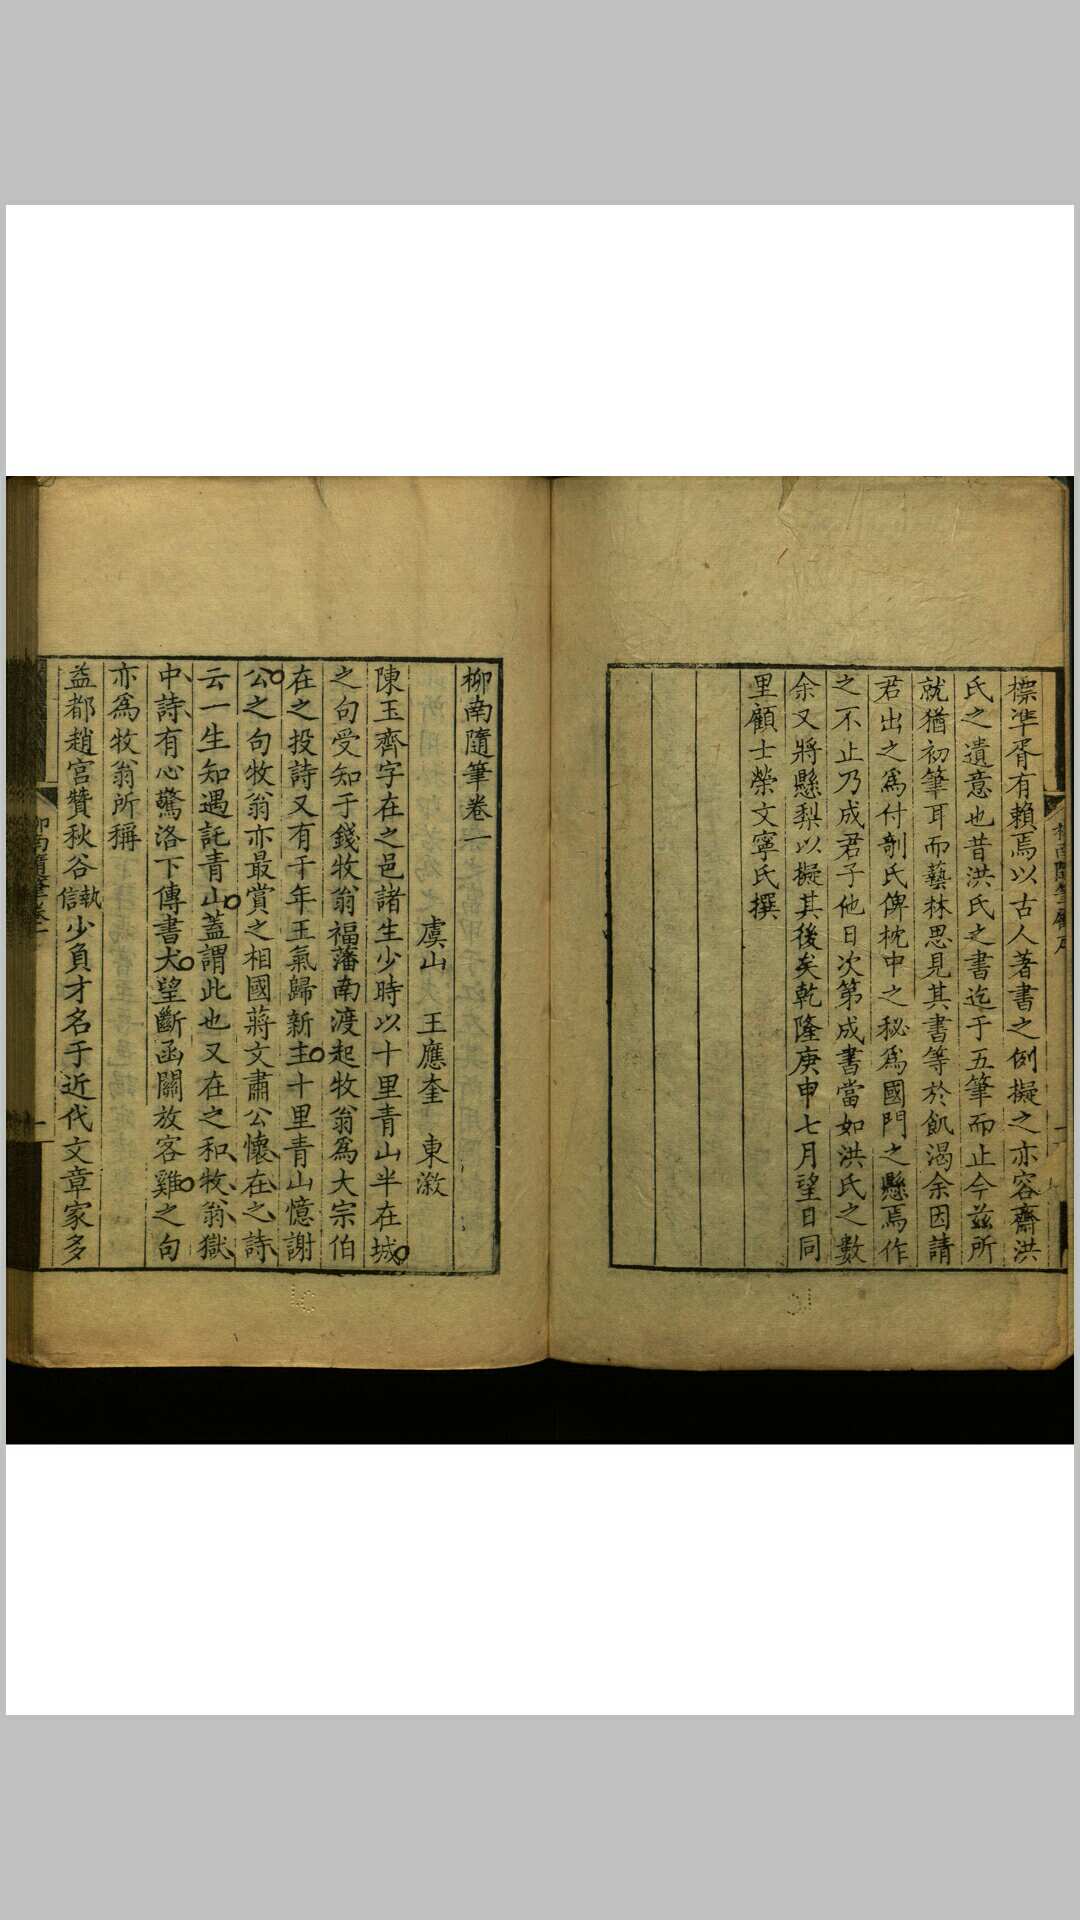 標準胥有賴焉以古人著書之例擬之亦容齋洪
氏之遺意也昔洪氏之書迄于五筆而止今茲所
就猶初筆耳而藝林思見其書等於飢渴余因請
君出之爲付剞氏俾枕中之秘爲國門之懸焉作
之不止乃成君子他日次第成書當如洪氏之數
余又將懸梨以擬其後矣乾隆庚申七月望日同
里顧士榮文寧氏撰
柳南隨筆卷一
虞山 王應奎 東漵
陳玉齊字在之邑諸生少時以十里青山半在城
之句受知于錢牧翁福藩南渡起牧翁爲大宗伯
在之投詩又有千年王氣歸新主十里青山憶謝
公之句牧翁亦最賞之相國蔣文肅公懷在之詩
云一生知遇託青山蓋謂此也又在之和牧翁獄
中詩有心驚洛下傳書犬望斷函關放客雞之句
亦爲牧翁所稱
益都趙宮贊秋谷執信少負才名于近代文章家多
柳南隨筆卷一
一